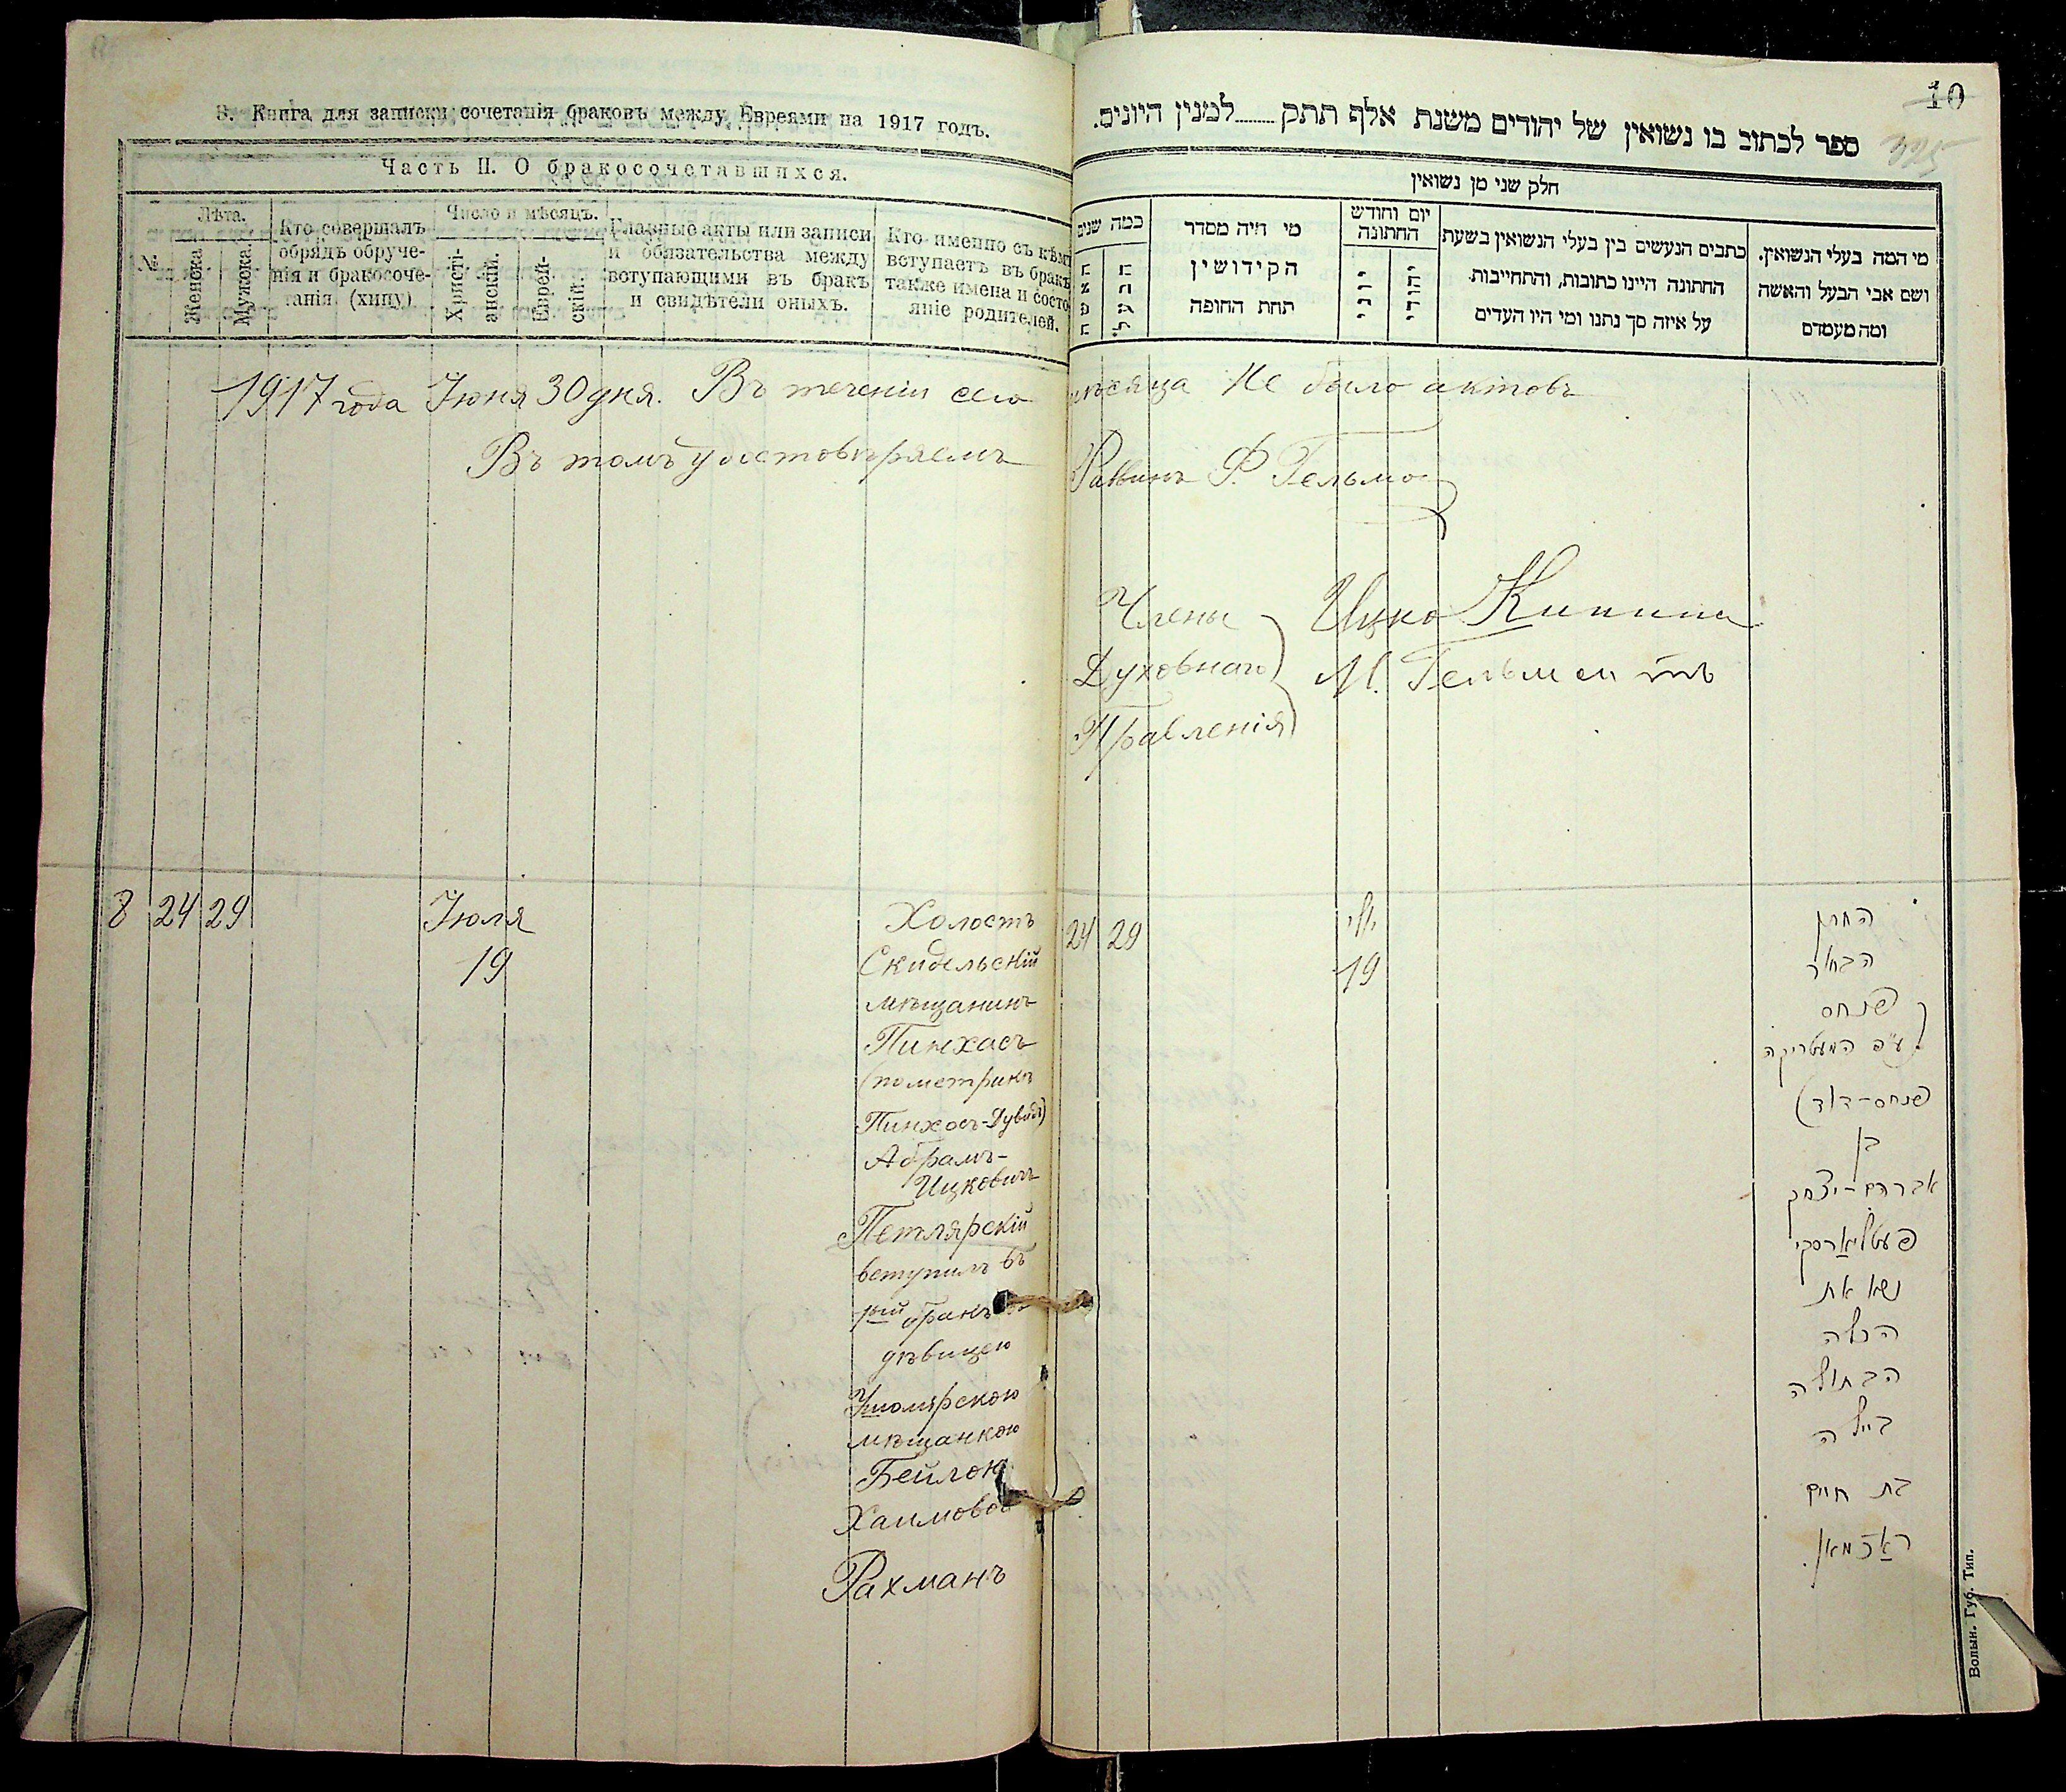 3. Книга для записки сочетанія браковъ между Евреями на 1917 годъ.
Часть II. О бракосочетавшихся.
№
Лѣта.
Женска.
Мужска.
Кто совершалъ
обрядъ обруче-
нія и бракосоче-
танія (хипу)
Число и мѣсяцъ.
Христі-
анскій.
Еврей-
скій.
Главные акты или записи
и обязательства между
вступающими въ бракъ
и свидѣтели оныхъ.
Кто именно съ кѣмъ
вступаетъ въ бракъ
также имена и состо-
яніе родителей.
1917 года Іюня 30 дня. Въ теченіи сего
Въ томъ удостовѣряемъ
8 24 29 Іюля
19
Холостъ
Скидельскій
мѣщанинъ
Пинхасъ
(по метрикѣ
Пинхосъ-Дувидъ)
Абрамъ-
Ицковичъ
Петлярскій
вступилъ въ
1ый бракъ
дѣвицею
Ушомирскою
мѣщанкою
Бейлою
Хаимовой
Рахманъ
10
ספר לכתוב בו נשואין של יהודים משנת אלף תתק למנין היונים.
חלק שני מן נשואין
כמה שנים
האשה
הבעל
מי היה מסדר
הקידושין
תחת החופה
יום וחודש
החתונה
יוני
יהודי
כתבים הנעשים בין בעלי הנשואין בשעת
החתונה היינו כתובות, והתחייבות
על איזה סך נתנו ומי היו העדים
מי המה בעלי הנשואין.
ושם אבי הבעל והאשה
ומה מעמדם
мѣсяца не было актовъ
Раввинъ Ф. Гельман
Члены
Духовнаго
Правленія
Ицко Кипнис
М. Гельман
24 29
יולי
19
החתן
הבחור
פנחס
(ע״פ המעטריקה
פנחס-דוד)
בן
אברהם-יצחק
פעטליארסקי
נשא את
הכלה
הבתולה
ביילה
בת חיים
ראַכמאן.
Волын. Губ. Тип.